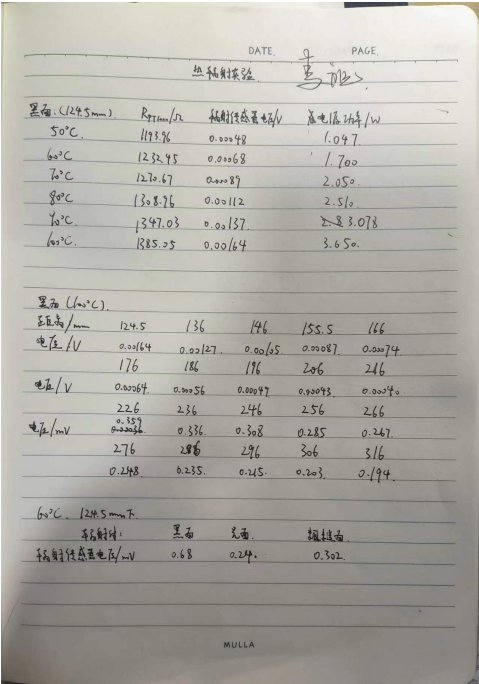 DATE. PAGE.
热辐射实验
黑面(124.5mm) R_PT1000/Ω 辐射传感器电压/V 热电偶功率/W
50°C 1193.96 0.00048 1.047
60°C 1232.45 0.00068 1.700
70°C 1270.67 0.00089 2.050
80°C 1308.96 0.00112 2.510
90°C 1347.03 0.00137 3.078
100°C 1385.05 0.00164 3.650
黑面(100°C)
距离/mm 124.5 136 146 155.5 166
电压/V 0.00164 0.00127 0.00105 0.00087 0.00074
176 186 196 206 216
电压/V 0.00064 0.00056 0.00049 0.00043 0.00040
226 236 246 256 266
电压/mV 0.359 0.336 0.308 0.285 0.267
276 286 296 306 316
0.248 0.235 0.215 0.203 0.194
60°C 124.5mm下
辐射时: 黑面 光面 粗糙面
辐射传感器电压/mV 0.68 0.24 0.302
MULLA